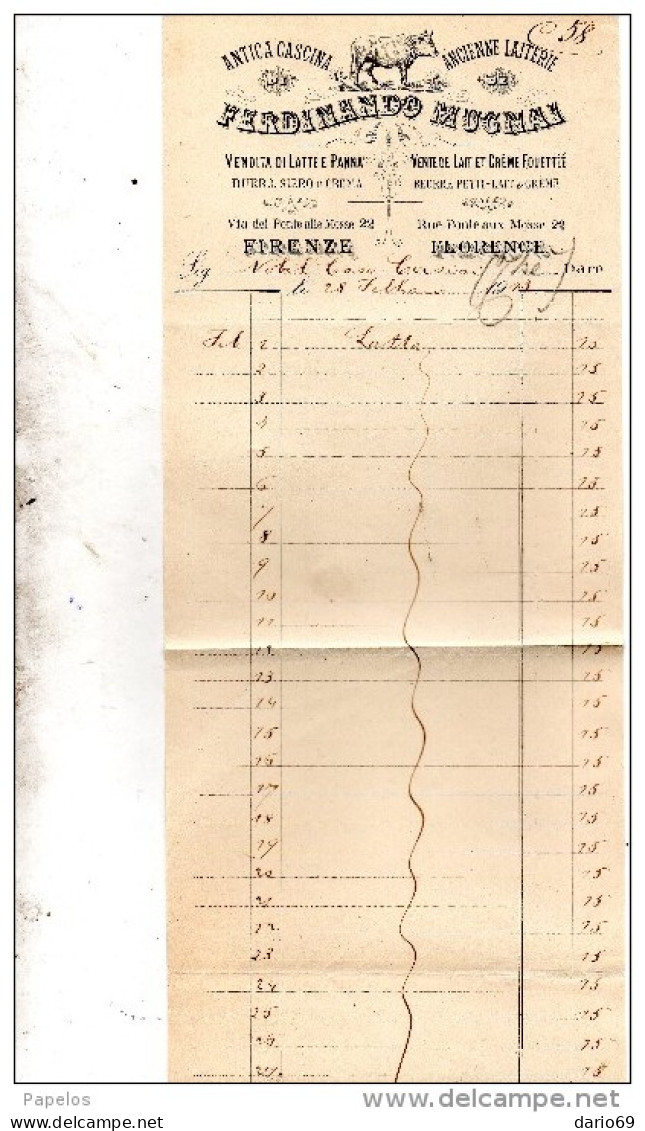 C 58
ANTICA CASCINA ANCIENNE LAITERIE
DI DE
FERDINANDO MUGNAI
VENDITA DI LATTE E PANNA VENTE DE LAIT ET CRÊME FOUETTÉE
BURRA, SIERO E CREMA BEURRE, PETIT-LAIT & CRÊME
Via del Ponte alle Mosse 22 Rue Ponte aux Mosse 22
FIRENZE FLORENCE
Sig Nobil Casa Dare
le 28 1913
Feb 1 Latte 25
2 25
3 25
4 25
5 25
6 25
7 25
8 25
9 25
10 25
11 25
12 25
13 25
14 25
15 25
16 25
17 25
18 25
19 25
20 25
21 25
22 25
23 25
24 25
25 25
26 25
27 25
Papelos
www.delcampe.net
dario69